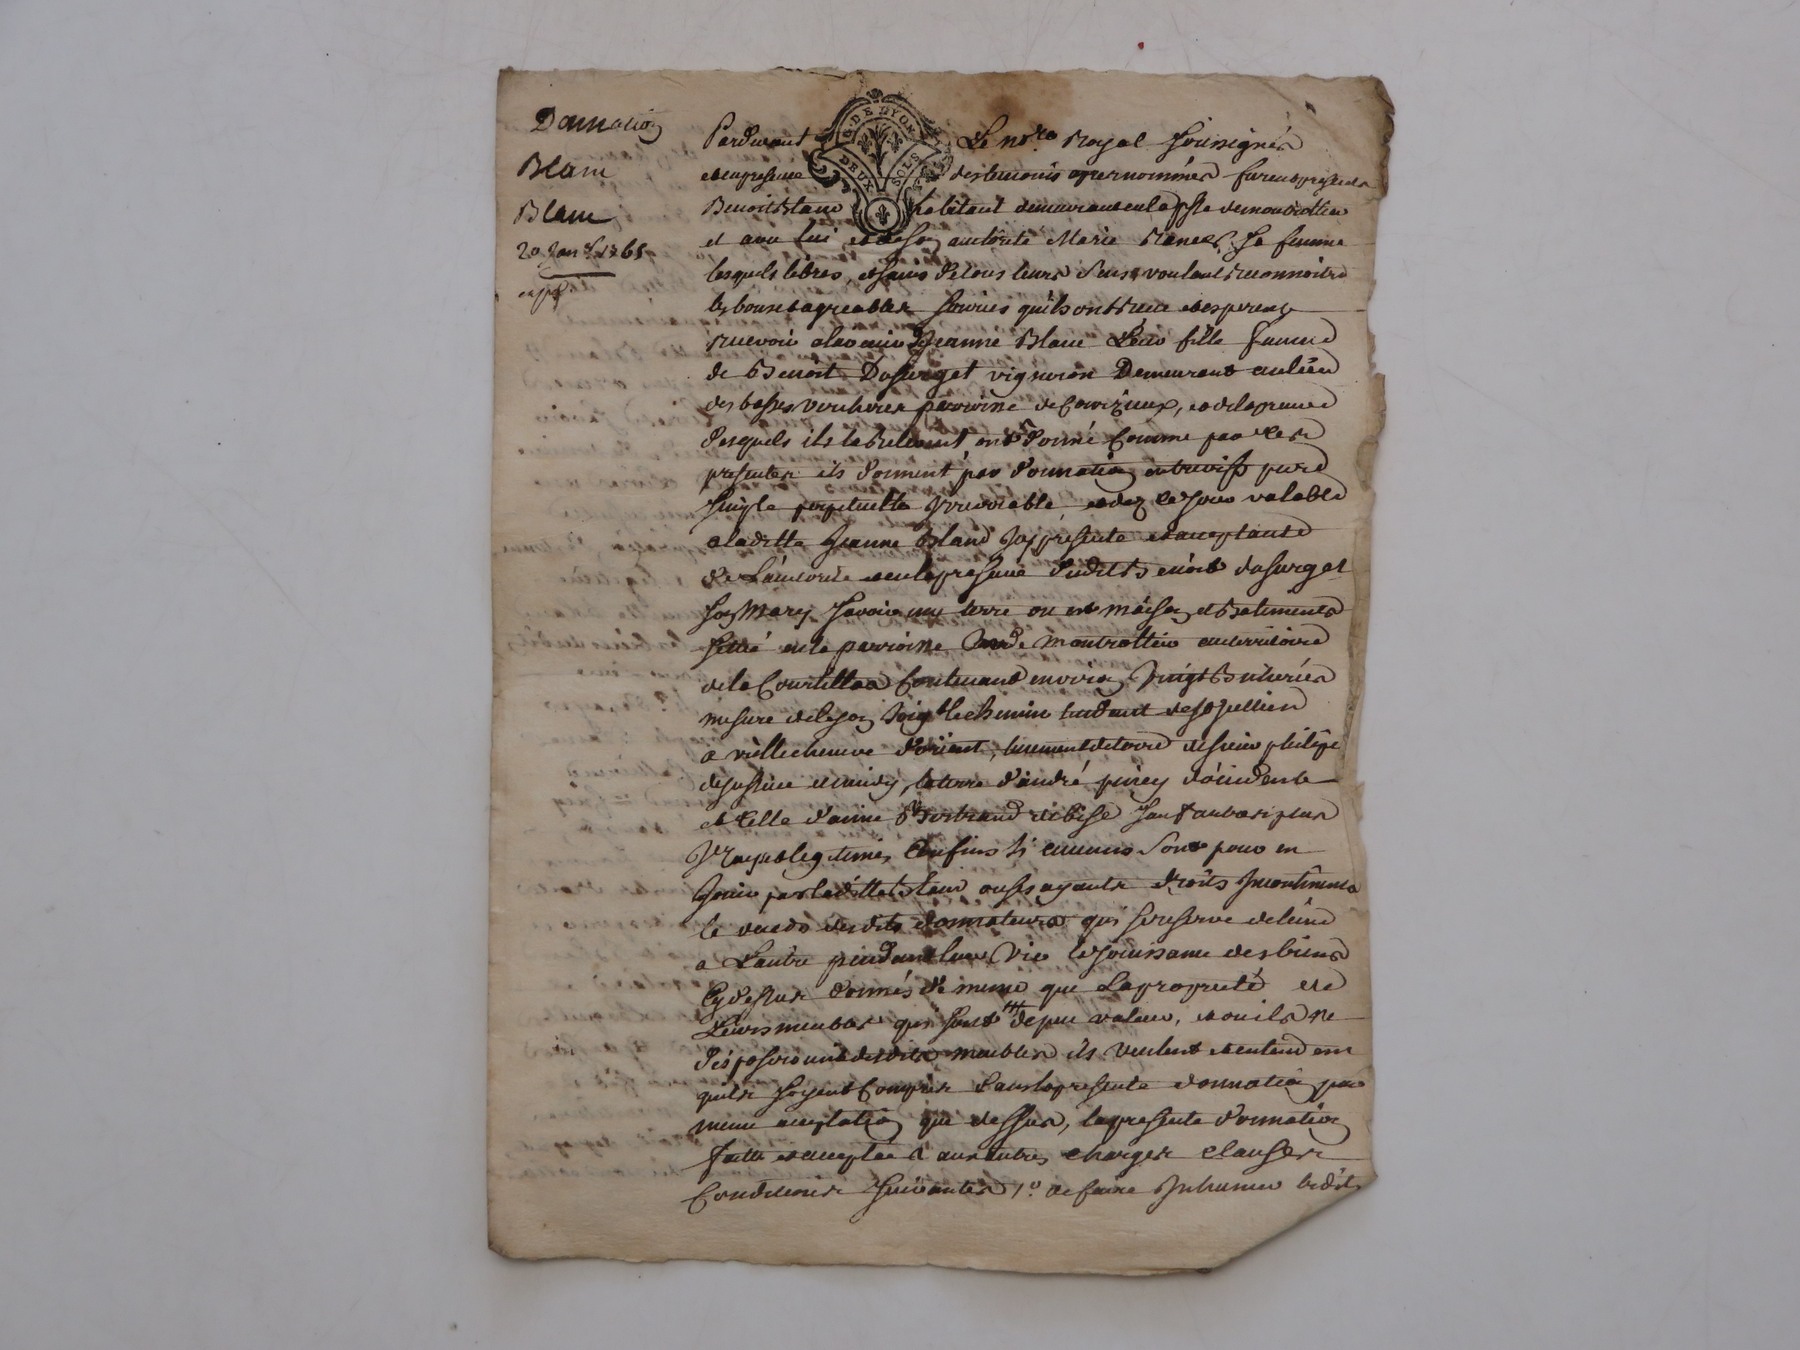 Donnation
Blanc
Blanc
20 Janv. 1765
exp.
G. DE LYON
DEUX SOLS
Pardevant Le no.re Royal soussigné
et en presence des temoins apres nommés furent presents
Benoit Blanc habitant demeurant en la psse de montrottier
et avec lui et de son autorité Marie sa femme
lesquels libres, et sains de tous leurs sens voulant reconnoitre
les bons et agreables services qu'ils ont recu et esperent
recevoir a lavenir de Jeanne Blanc Leur fille femme
de Benoit Dasurget vigneron Demeurant au lieu
des basses vercheres parroisse de Courzieux, et de la preuve
desquels ils la relevent, ont donné Comme par ces
presentes ils donnent par donnation entre vifs pure
simple perpetuelle Irrevocable et dez ce jour valable
a laditte Jeanne Blanc Icy presente et acceptante
de L'autorité et en la presence dudit Benoit dasurget
son Mary savoir une terre ou est maison et Batiments
situé en la parroisse de montrottier au territoire
de la Courtillas Contenant environ Vingt Bicherées
mesure de Joignt le chemin tendant de
a villecheneve d'orient, terre de sieur philipe
et midy, la terre d'andré d'occident
et Celle d'anne de bise sauf autres plus
Vrays et legitimes Confins si aucuns sont pour en
Jouir par laditte Blanc ou ses ayants droits Incontinent
le deceds desdits donnateurs qui se reserve de l'un
a L'autre pendant leur Vie la jouissance des biens
Cy dessus donnés de meme que La propriété de
Leurs meubles qui sont de peu valeur, et ou ils ne
disposeroient desdits meubles ils veulent et entendent
quils soyent Compris dans la presente donnation par
meme acceptation que dessus, la presente donnation
faitte et acceptée aux autres charges clauses
Conditions suivantes 1.o de faire Inhumer ledit